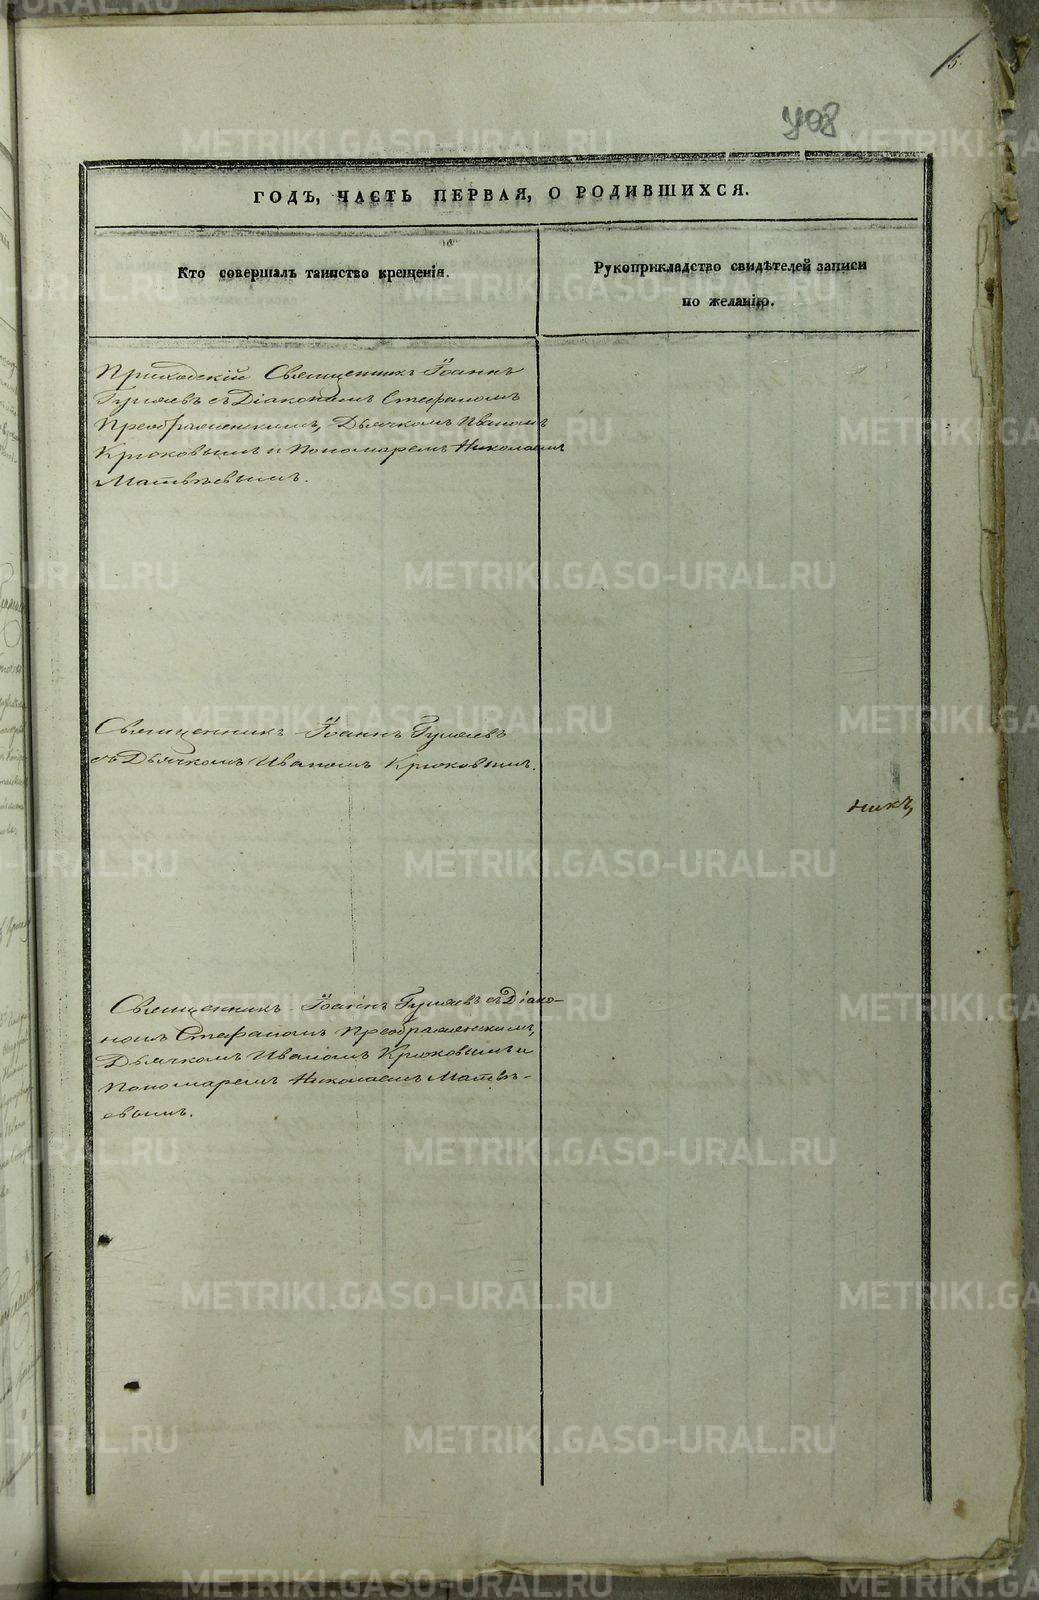 5.
408
ГОДЪ, ЧАСТЬ ПЕРВАЯ, О РОДИВШИХСЯ.
Кто совершалъ таинство крещенія.
Рукоприкладство свидѣтелей записи
по желанію.
Приходскій Священникъ Іоаннъ
Гуляевъ съ Діакономъ Стефаномъ
Преображенскимъ, Дьячкомъ Иваномъ
Крюковымъ и Пономаремъ Николаемъ
Матвѣевымъ.
Священникъ Іоаннъ Гуляевъ
съ Дьячкомъ Иваномъ Крюковымъ.
никъ,
Священникъ Іоаннъ Гуляевъ съ Діако-
номъ Стефаномъ Преображенскимъ,
Дьячкомъ Иваномъ Крюковымъ и
Пономаремъ Николаемъ Матвѣ-
евымъ.
METRIKI.GASO-URAL.RU